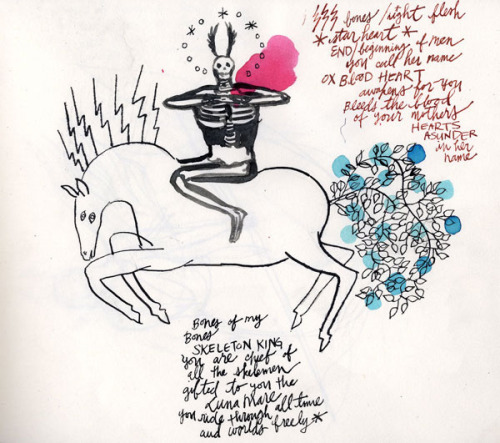 bones / night flesh
* star heart *
END/beginning of men
you call her name
OX BLOOD HEART
awakens for you
Bleeds the blood
of your mothers
HEARTS
ASUNDER
in her
name
Bones of my
Bones
SKELETON KING
you are chief of
all the skelemen
gifted to you the
Luna Mare
you ride through all time
and worlds freely *